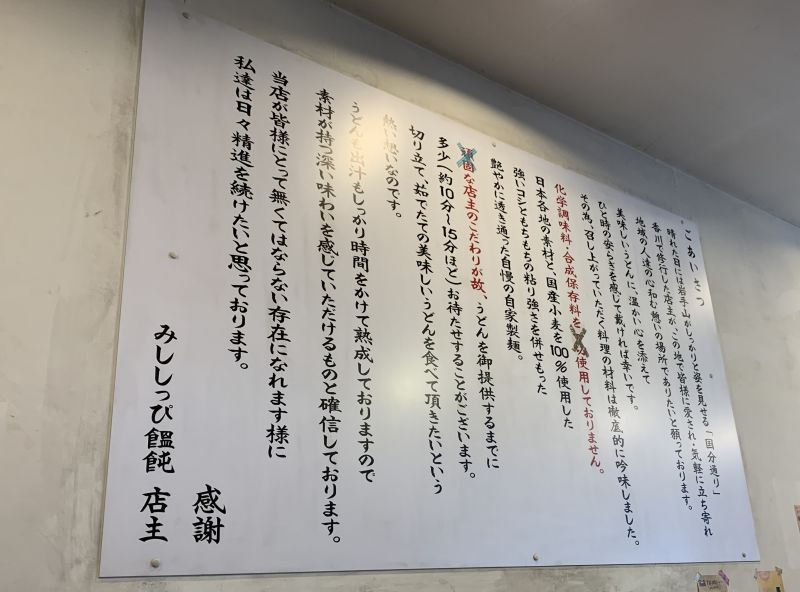 ごあいさつ
晴れた日には岩手山がくっきりと姿を見せる「国分通り」
香川で修行した店主が、この地で皆様に愛され・気軽に立ち寄れ
地域の人達の心和む憩いの場所でありたいと願っております。
美味しいうどんに、温かい心を添えて
ひと時の安らぎを感じて戴ければ幸いです。
その為、召し上がっていただく料理の材料は徹底的に吟味しました。
化学調味料・合成保存料を 使用しておりません。
日本各地の素材と、国産小麦を100%使用した
強いコシともちもちの粘り強さを併せもった
艶やかに透き通った自慢の自家製麺。
固な店主のこだわりが故、うどんを御提供するまでに
多少(約10分〜15分ほど)お待たせすることがございます。
切り立て、茹でたての美味しいうどんを食べて頂きたいという
熱い想いなのです。
うどんも出汁もしっかり時間をかけて熟成しておりますので
素材が持つ深い味わいを感じていただけるものと確信しております。
当店が皆様にとって無くてはならない存在になれます様に
私達は日々精進を続けたいと思っております。
感謝
みししっぴ饂飩 店主